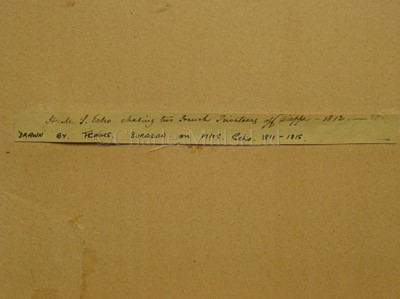 H. M. S. Echo chasing two French Privateers off Dieppe - 1812
DRAWN BY SURGEON on HMS. Echo. 1811 - 1815.